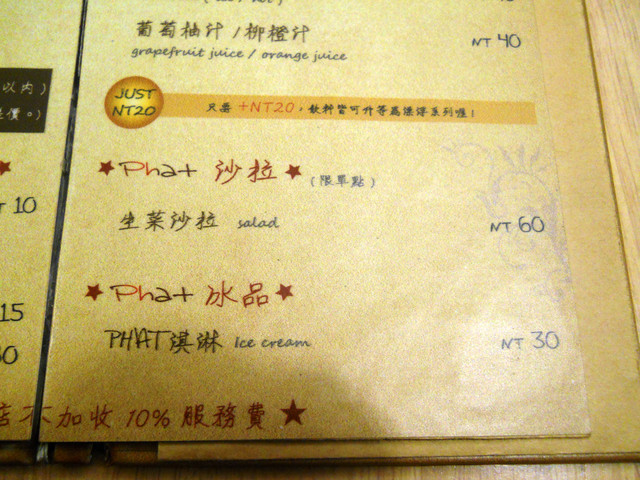 葡萄柚汁 / 柳橙汁 NT 40
grapefruit juice / orange juice
以內)
JUST NT20
只要 +NT20,飲料皆可升等為漂浮系列喔!
價。)
★Phat 沙拉★ (限單點)
10
生菜沙拉 salad NT 60
★Phat 冰品★
15
PHAT淇淋 Ice cream NT 30
店不加收 10% 服務費 ★